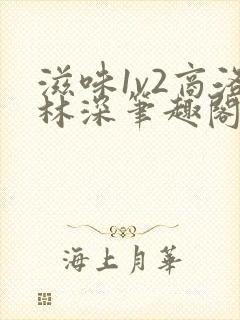 滋味1v2高洛
林深笔趣阁
海上月华